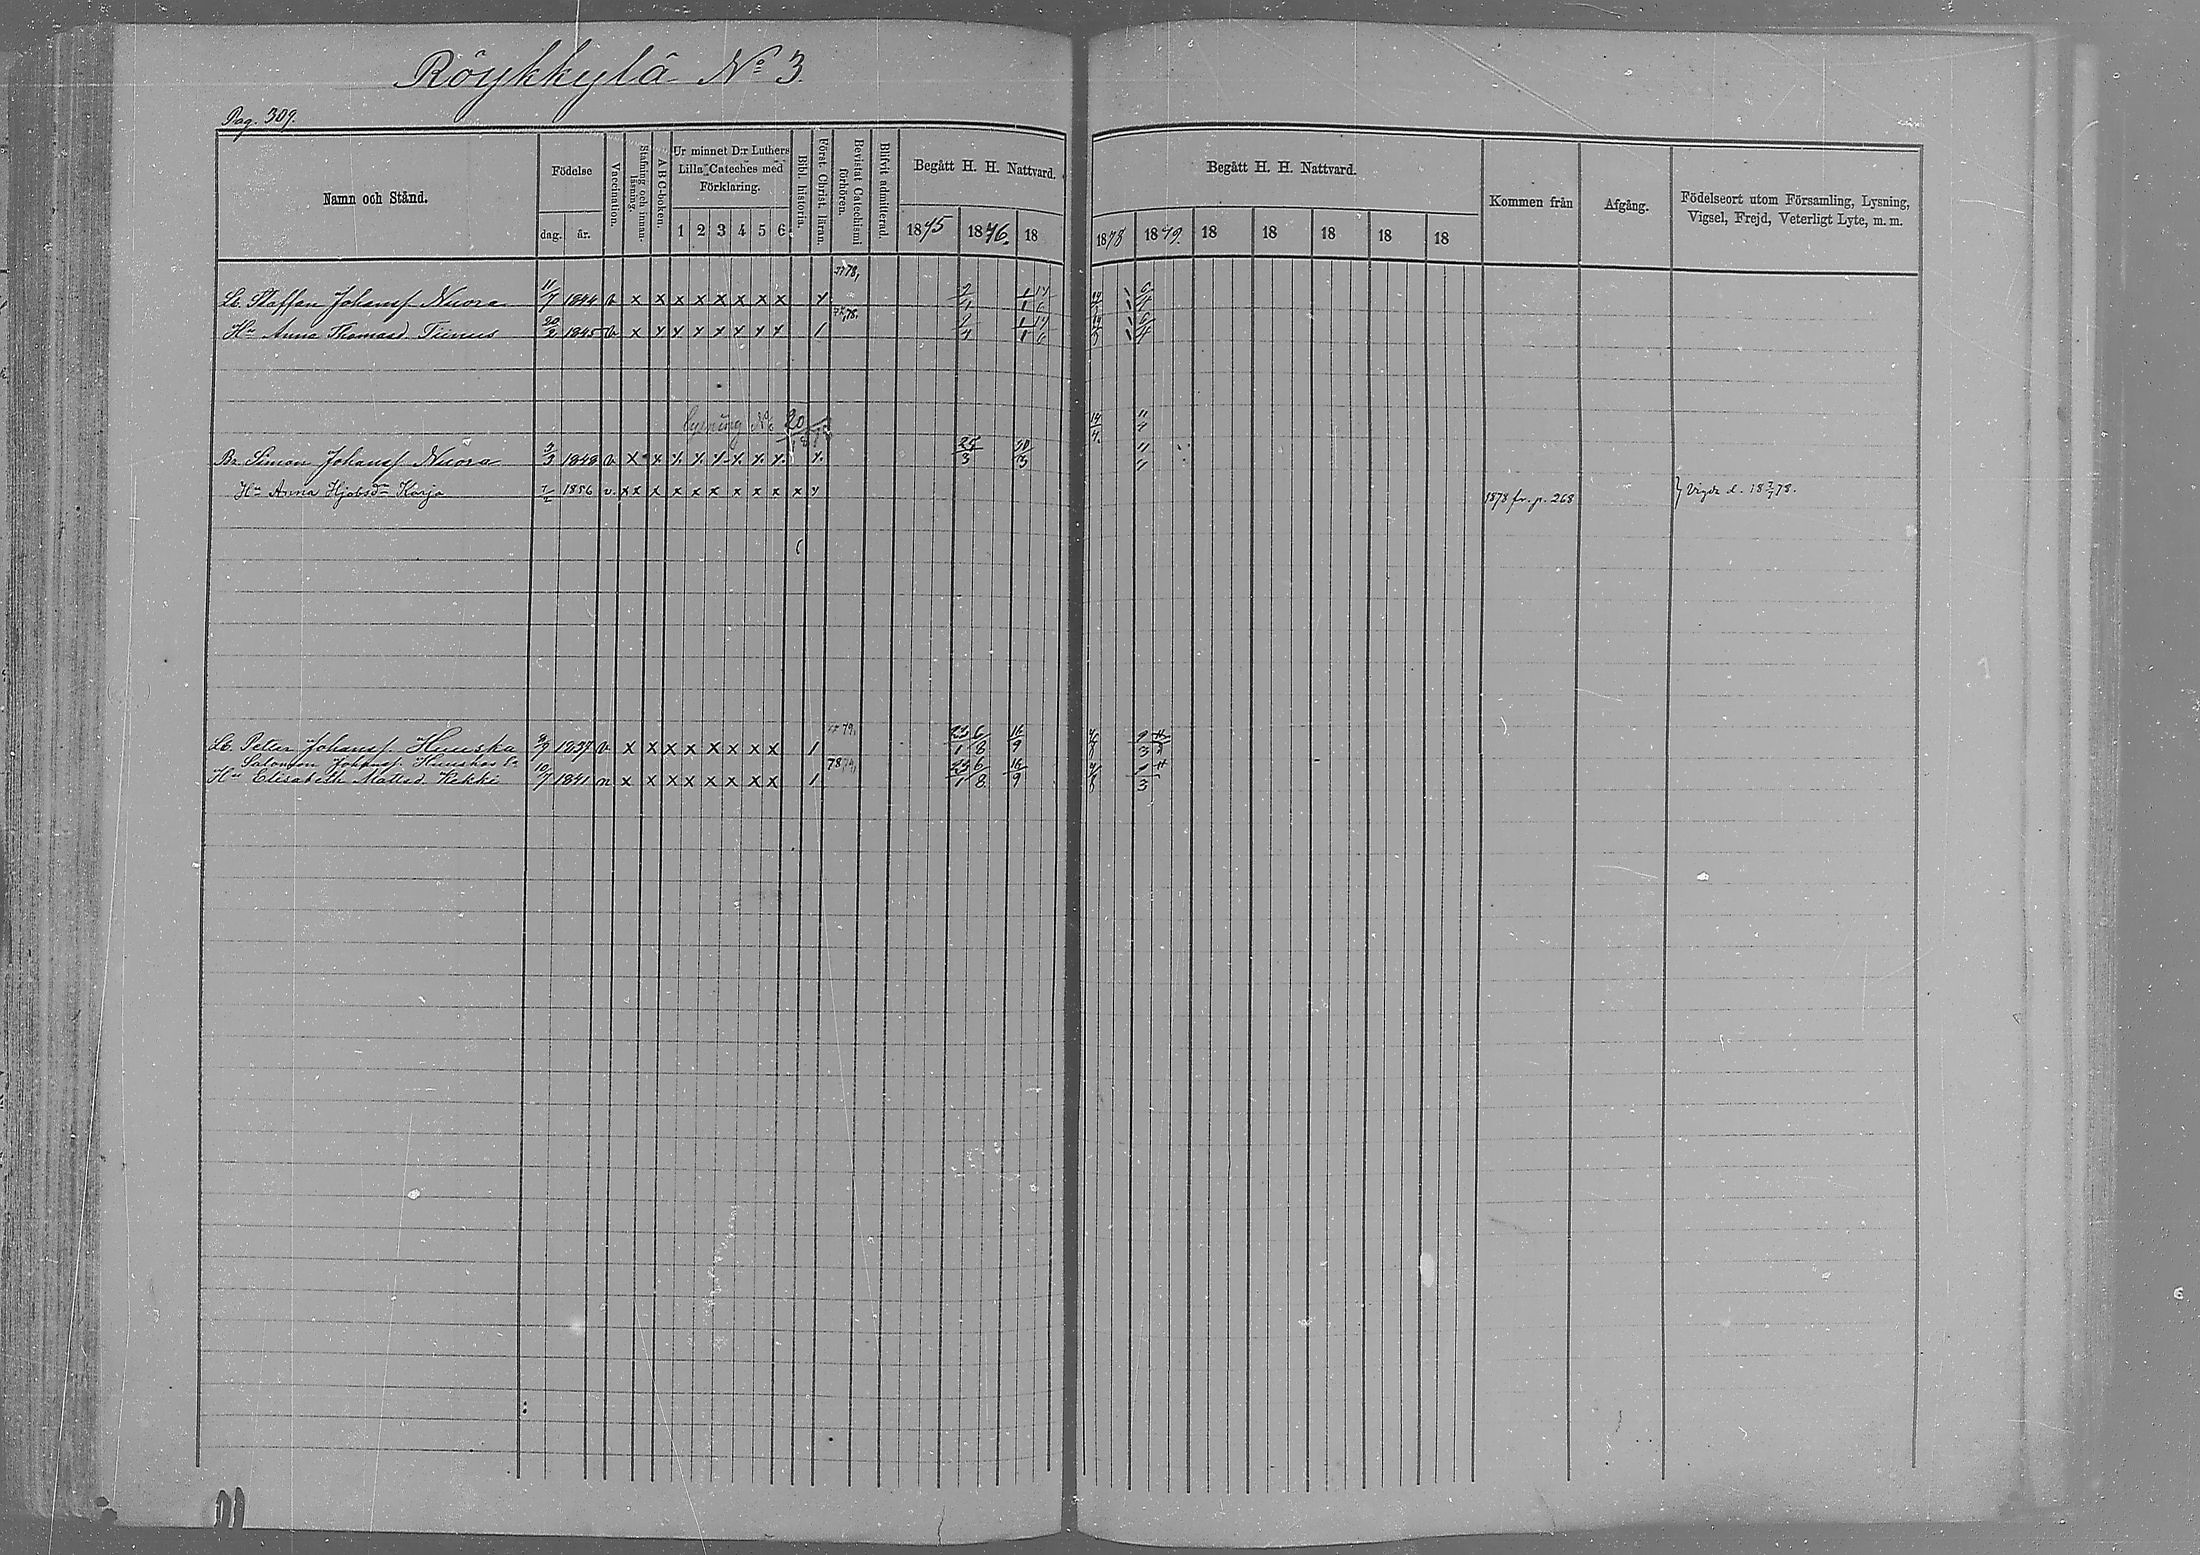 Röykkylä No 3.
Pag. 309.
Namn och Stånd.
Födelse
dag. år.
Vaccination.
Stafning och innan-läsning.
A B C-boken.
Ur minnet D:r Luthers
Lilla Cateches med
Förklaring.
1 2 3 4 5 6
Bibl. historia.
Först. Christ. läran.
Bevistat Catechismi förhören.
Blifvit admitterad.
Begått H. H. Nattvard.
1875 1876. 18
Begått H. H. Nattvard.
1878 1879. 18 18 18 18 18
Kommen från
Afgång.
Födelseort utom Församling, Lysning,
Vigsel, Frejd, Veterligt Lyte, m. m.
78,
Lb. Staffan Johansf. Nuora 11/7 1844 v x x x x x x x x
78.
Hu Anna Thomasd. Tiinus 20/2 1845 v x x x x x x x x 1
lysning No 20
Br. Simon Johansf. Nuora 3/3 1848 v x x x x x x x x x 25/3
Hu Anna Hjobsdr Korjo 7/2 1856 v. x x x x x x x x x x 1878 fr. p. 268 } Vigde d. 18 7/7 78.
79,
Lb. Petter Johansf. Huuska 3/9 1837 v x x x x x x x x 1 23/1 6/8 16/9
Salomon Johansf. Huuskas
Hu Elisabeth Matsd. Kekki 10/7 1841 n x x x x x x x x 1 78 23/1 6/8 16/9